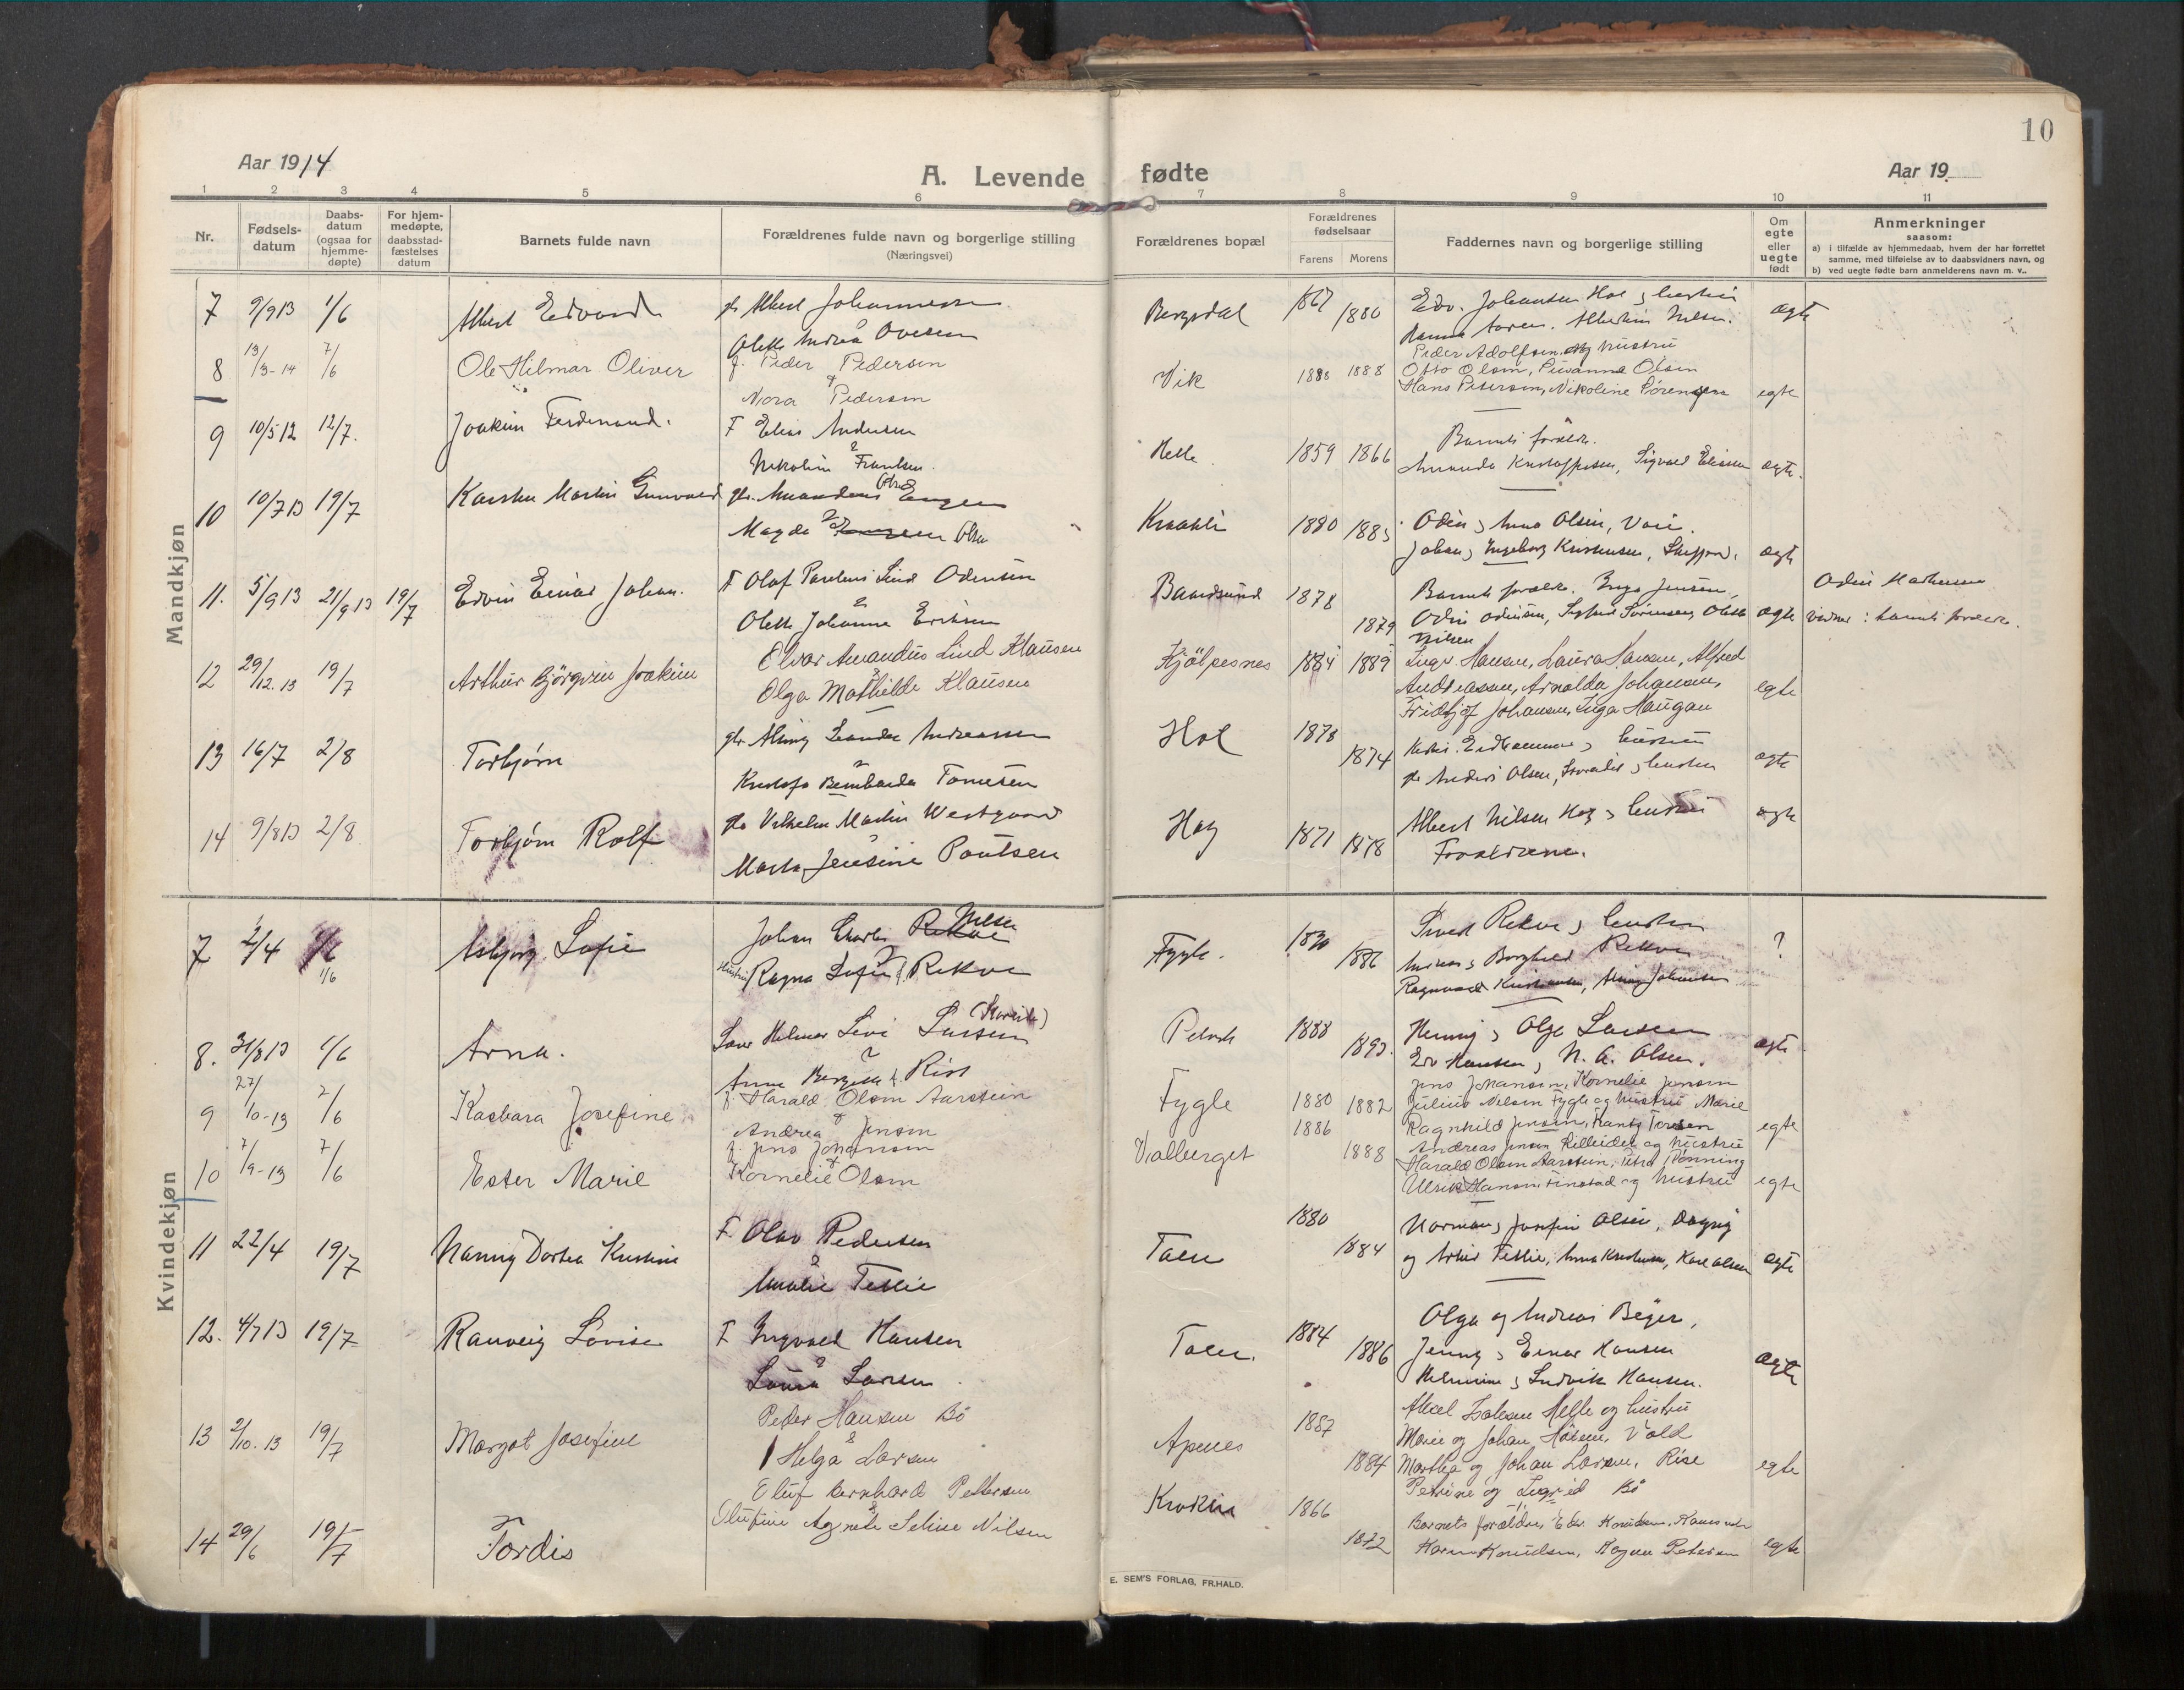 10
Aar 1914
A. Levende fødte
Aar 19
1 2 3 4 5 6 7 8 9 10 11
Nr.
Fødsels-
datum
Daabs-
datum
(ogsaa for
hjemme-
døpte)
For hjem-
medøpte,
daabsstad-
fæstelses
datum
Barnets fulde navn
Forældrenes fulde navn og borgerlige stilling
(Næringsvei)
Forældrenes bopæl
Forældrenes
fødselsaar
Farens Morens
Faddernes navn og borgerlige stilling
Om
egte
eller
uegte
født
Anmerkninger
saasom:
a) i tilfælde av hjemmedaab, hvem der har forrettet
samme, med tilføielse av to daabsvidners navn, og
b) ved uegte fødte barn anmelderens navn m. v..
Mandkjøn
7 9/9 13 1/6 Albert Edvard Albert Johannessen
Olette Andrea Ovesen
Bergsdal 1867 1880 Edv. Johansen Hol
ægte
8 13/3-14 7/6 Ole Hilmar Oliver f. Peder Pedersen
Nora Pedersen
Vik 1888 1888 Peder Adolfsen og hustru
Otto Olsen, Susanna Olsen
Hans Petersen, Nikoline Sørensen egte
9 10/5 12 12/7. Joakim Ferdinand. F Elias Andersen
&
Nikoline Frantsen.
Helle 1859 1866 Barnets foræld.
Amanda Kristoffersen, Sigvald Eliassen ægte.
10 10/7 13 19/7 Karsten Martin Gunvald Olsen
Magda Olsen
1880 1885 Oden & Anna Olsen,
Johan & Ingeborg Kristensen, ægte
11. 5/9 13 21/9 13 19/7 Edvin Einar Johan. F Olaf Paulens Lind Odensen
&
Olette Johanna Eriksen
Baadsund 1878 1879 Barnets foræld. Inga Jensen,
Odin Odinsen, Sigfred Sørensen, Olette
Nilsen
ægte Odin Mathisen
vidner: barnets foræld.
12 29/12. 13 19/7 Arthur Bjørgvin Joakim Elvar Amandus Lind Klausen
&
Olga Mathilde Klausen
Kjølpesnes 1884 1889 Inga Hansen, Laura Hansen, Alfred
Andreassen, Arnolda Johansen,
Fridtjof Johansen, Inga Haugan
egte
13 16/7 2/8 Torbjørn Alming Leander Andreassen
&
Kristofa Bernharda Tomesen
Hol 1878 1874
Anders Olsen,
ægte
14 9/8 13 2/8 Torbjørn Rolf Vilhelm Martin Westgaard
Marta Jensine Poulsen
Hag 1871 1878 Albert Nilsen Hag & hustru
Forældrene.
ægte
Kvindekjøn
7 2/4 1/6 Asbjørg Sofie Johan Charles Nilsen
Hustru Ragna Sofie f. Rekve
Fygle. 1886 Sivert Rekve & hustru
Andreas & Borghild Rekve
Ragnvald Kristiansen, Alming Johansen
?
8. 31/8 13 1/6 Arna. Lars Hilmar Levi Larsen
&
Anna Bergitte f. Rist
1888 1893. Henny & Olga Larsen
Edv Hansen & N. A. Olsen.
ægte
9 27/10-13 7/6 Kasbara Josefine f. Harald Olsen Aarstein
&
Andrea Jensen
Fygle 1880 1882 Jens Johansen, Kornelie Jensen
Julius Nelsen Fygle og hustru Marie
Ragnhild Jensen, Frants Torsen egte
10 7/9-13 7/6 Ester Marie f. Jens Johansen
&
Kornelie Olsen
Valberget 1886 1888 Andreas Jensen Lilleeidet og hustru
Harald Olsen Aarstein, Petra Rønning
Ulrik Hansen Finstad og hustru egte
11 22/4 19/7 Nanny Dortea Kristine F. Olav Pedersen
&
Amalie Teslie
Taen 1880 1884 Norman & Josefin Olsen, Dagny
og Astrid Teslie, Anna Kristensen, Karl Olsen ægte
12. 4/7 13 19/7 Ranveig Lovise F Ingvald Hansen
&
Laura Larsen.
Taen. 1884 1886 Olga og Andreas Bøger,
Jenny & Einar Hansen
Helmine & Ludvik Hansen.
ægte
13 2/10. 13 19/7 Margot Josefine Peder Hansen Bö
&
Helga Larsen
Apenes 1887 1884 Aksel Isaksen Helle og hustru
Marie og Johan Hansen, Vold
Martha og Johan Larsen, Rise
Petrine og Sigrid Bö
egte
14 29/6 19/7 Tordis Oluf Bernhard Pettersen
&
Olufine Agnete Selise Nilsen
1866 1872 Barnets forældre, Edv. Knudsen,
Karen Knudsen, Ragna Petersen
egte
E. SEM'S FORLAG, FR.HALD.